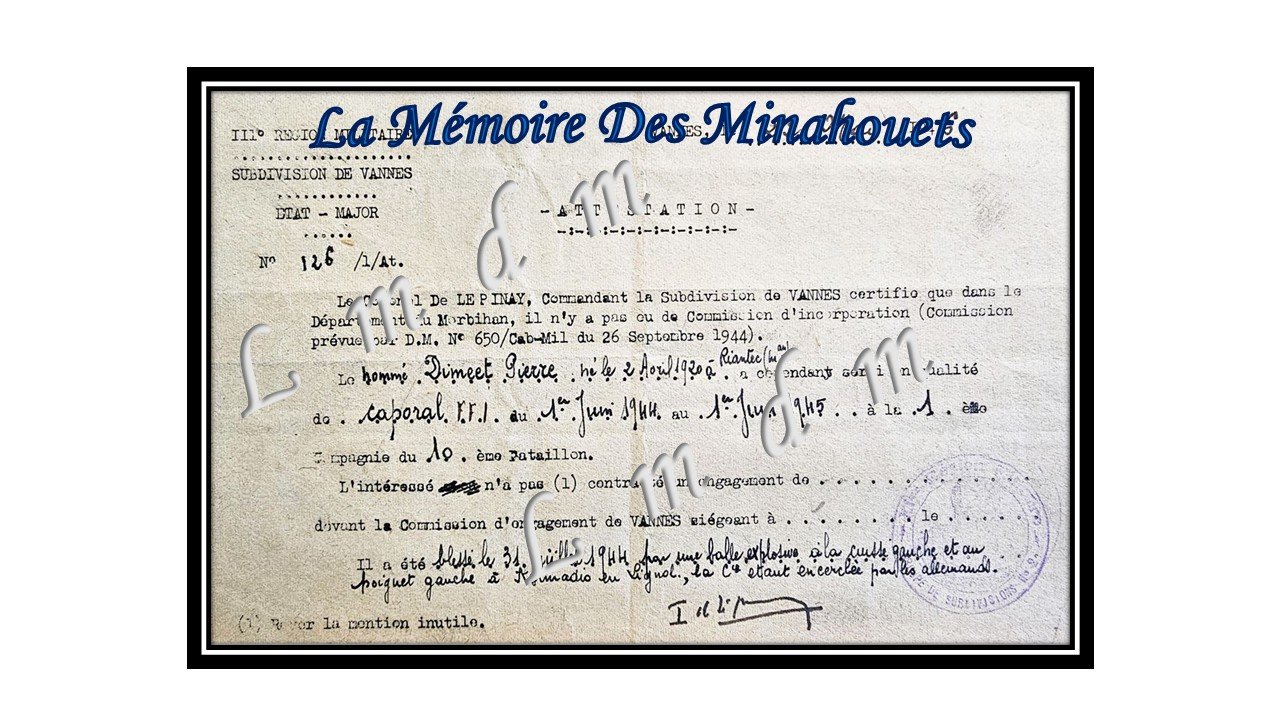 La Mémoire Des Minahouets
III° REGION MILITAIRE
VANNES,
SUBDIVISION DE VANNES
ETAT - MAJOR
- A T T E S T A T I O N -
N° 126 /1/At.
Le Général De LEPINAY, Commandant la Subdivision de VANNES certifie que dans le
Département du Morbihan, il n'y a pas eu de Commission d'incorporation (Commission
prévue par D.M. N° 650/Cab-Mil du 26 Septembre 1944).
Le nommé Pierre né le 2 Avril 1920 à Riantec a cependant servi en qualité
de . caporal F.F.I. du 1er Juin 1944 au 1er Juin 1945 . . à la .1. ème
Compagnie du 10 . ème Bataillon.
L'intéressé n'a pas (1) contracté un engagement de . . . . . . . . . . . . .
devant la Commission d'engagement de VANNES siégeant à . . . . . . . . le . . . . .
Il a été blessé le 31 Juillet 1944 par une balle explosive à la cuisse gauche et au
poignet gauche à en Lignol., la Cie étant encerclée par les allemands.
(1) Rayer la mention inutile.
L m d m
L m d m
DE SUBDIVISIONS